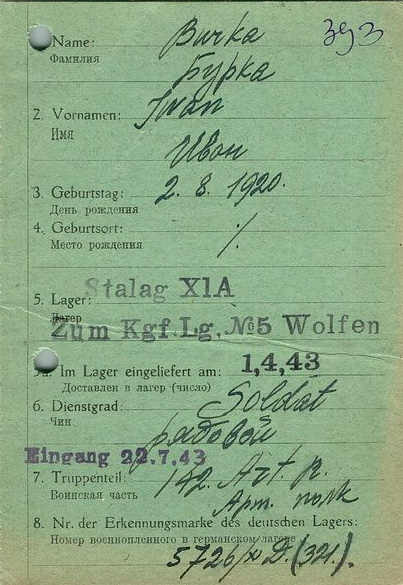 Name: Burka 393
Фамилия Бурка
2. Vornamen: Iwan
Имя Ивон
3. Geburtstag: 2. 8. 1920.
День рождения
4. Geburtsort: ./.
Место рождения
Stalag X1A
5. Lager:
Лагер
Zum Kgf.Lg. №5 Wolfen
5a. Im Lager eingeliefert am: 1,4,43
Доставлен в лагер (число)
6. Dienstgrad: Soldat
Чин рядовой
Eingang 22.7.43
7. Truppenteil: 142. Art. р.
Воинская часть Арт. полк
8. Nr. der Erkennungsmarke des deutschen Lagers:
Номер военнопленного в германском лагере
5726/XI D. (321).